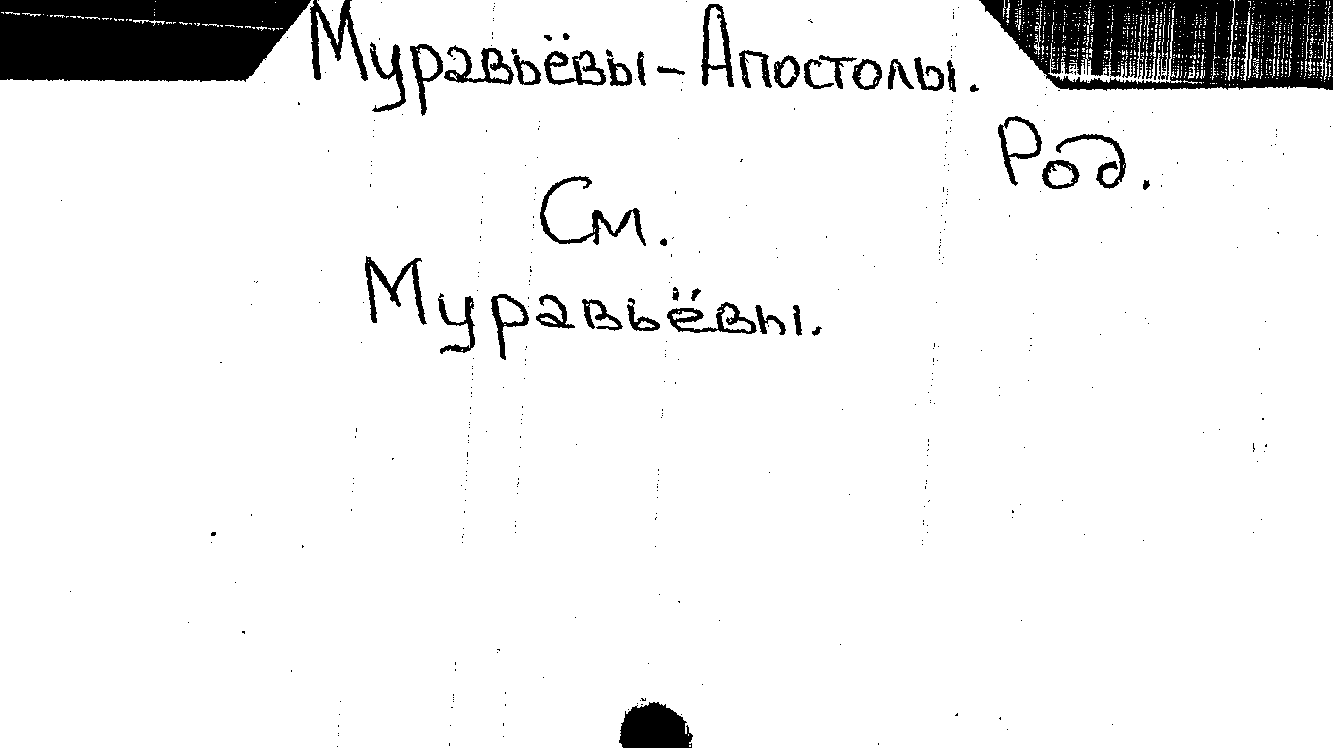 Муравьёвы-Апостолы.
Род.
См.
Муравьёвы.